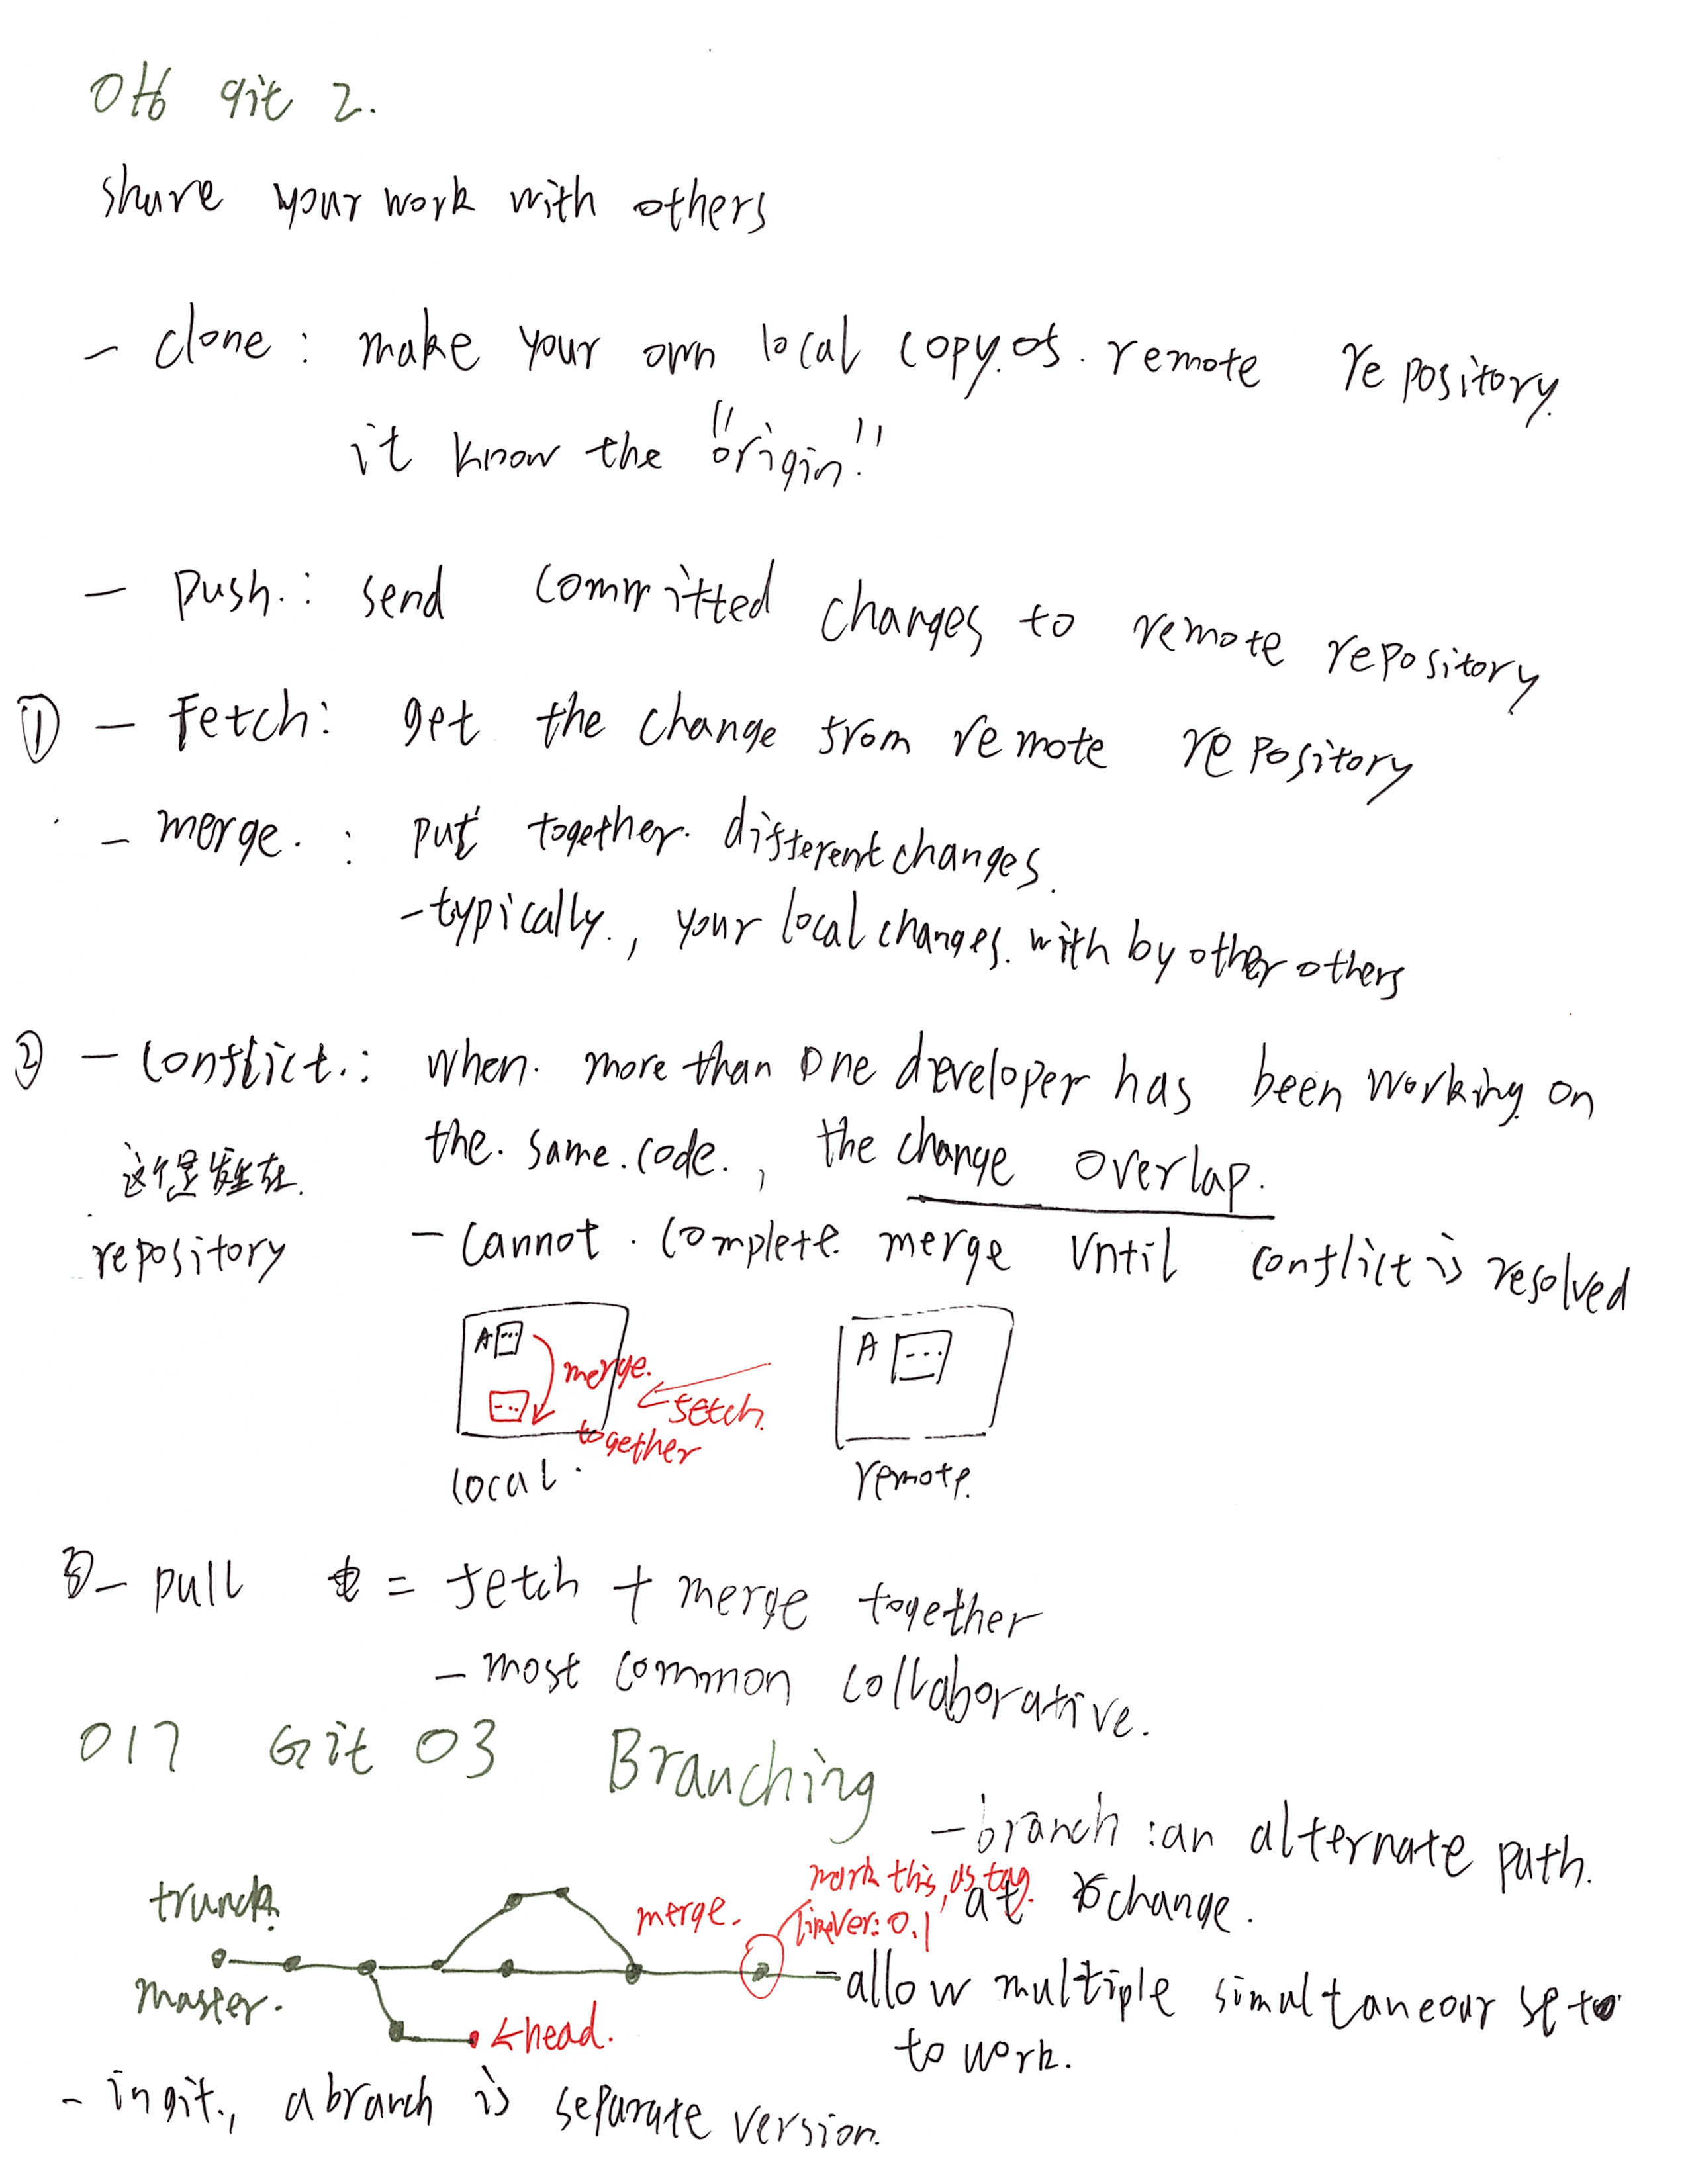 016 git 2.
share your work with others
- clone : make your own local copy of remote repository.
it know the "origin."
- Push. : send committed changes to remote repository
① - Fetch: get the change from remote repository
- merge. : put together different changes.
- typically., your local changes. with by other others
② - conflict. : when. more than one developer has been working on
the. same. code., the change overlap.
这个是发生在.
repository
- cannot. complete. merge until conflict is resolved
A
merge.
together
fetch.
A
local.
remote.
③ - pull = fetch + merge together
- most common collaborative.
017 Git 03 Branching
- branch : an alternate path.
at change.
mark this, as tag.
Ver: 0.1
trunck.
merge.
master.
<head.
- allow multiple simultaneour set
to work.
- in git., a branch is separate version.